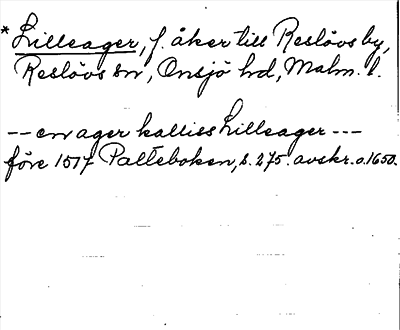 * Lilleager, f. åker till Reslövs by,
Reslövs sn, Onsjö hd, Malm. l.
-- en ager kalliss Lilleager ---
före 1517 Palteboken, s. 275. avskr. o. 1650.